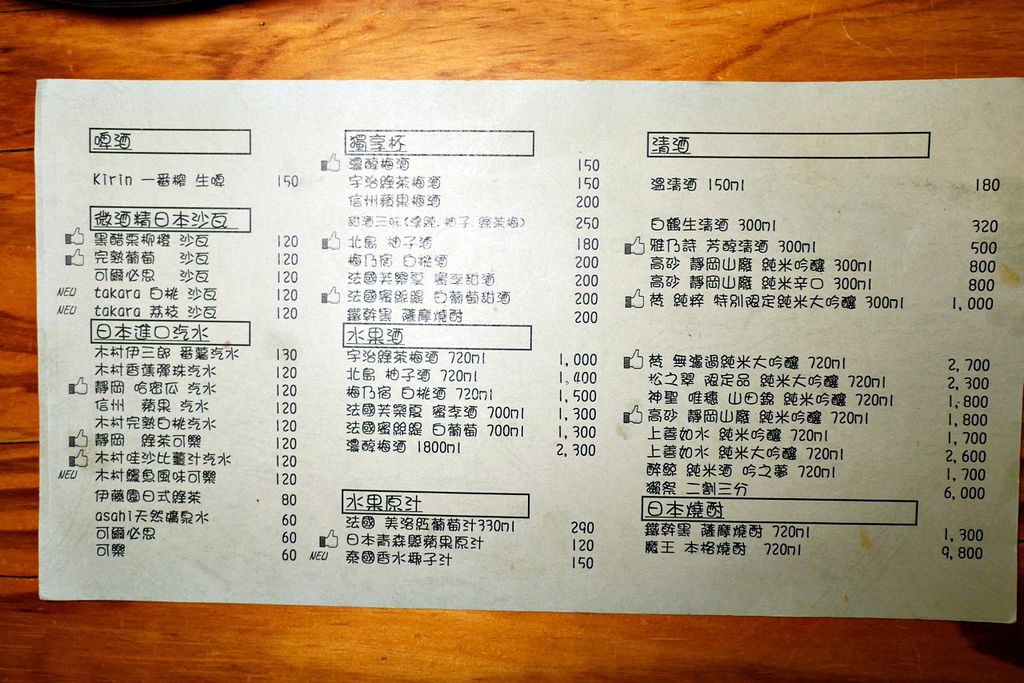 啤酒
Kirin 一番榨 生啤 150
微酒精日本沙瓦
黑醋栗柳橙 沙瓦 120
完熟葡萄 沙瓦 120
可爾必思 沙瓦 120
NEU takara 白桃 沙瓦 120
NEU takara 荔枝 沙瓦 120
日本進口汽水
木村伊三郎 番薯汽水 130
木村香蕉彈珠汽水 120
靜岡 哈密瓜 汽水 120
信州 蘋果 汽水 120
木村完熟白桃汽水 120
靜岡 綠茶可樂 120
木村哇沙比薑汁汽水 120
NEU 木村鰻魚風味可樂 120
伊藤園日式綠茶 80
asahi天然礦泉水 60
可爾必思 60
可樂 60
獨享杯
濃醇梅酒 150
宇治綠茶梅酒 150
信州蘋果梅酒 200
甜酒三味(濃純, 柚子, 綠茶梅) 250
北島 柚子酒 180
梅乃宿 白桃酒 200
法國芙樂夏 蜜李甜酒 200
法國蜜絲緹 白葡萄甜酒 200
鐵幹黑 薩摩燒酎 200
水果酒
宇治綠茶梅酒 720ml 1,000
北島 柚子酒 720ml 1,400
梅乃宿 白桃酒 720ml 1,500
法國芙樂夏 蜜李酒 700ml 1,300
法國蜜絲緹 白葡萄 700ml 1,300
濃醇梅酒 1800ml 2,300
水果原汁
法國 美洛紅葡萄汁330ml 290
日本青森縣蘋果原汁 120
NEU 泰國香水椰子汁 150
清酒
溫清酒 150ml 180
白鶴生清酒 300ml 320
雅乃詩 芳醇清酒 300ml 500
高砂 靜岡山廢 純米吟釀 300ml 800
高砂 靜岡山廢 純米辛口 300ml 800
純粹 特別限定純米大吟釀 300ml 1,000
無濾過純米大吟釀 720ml 2,700
松之翠 限定品 純米大吟釀 720ml 2,300
神聖 唯穗 山田錦 純米大吟釀 720ml 1,800
高砂 靜岡山廢 純米吟釀 720ml 1,800
上善如水 純米吟釀 720ml 1,700
上善如水 純米大吟釀 720ml 2,600
醉鯨 純米酒 吟之夢 720ml 1,700
獺祭 二割三分 6,000
日本燒酎
鐵幹黑 薩摩燒酎 720ml 1,300
魔王 本格燒酎 720ml 9,800